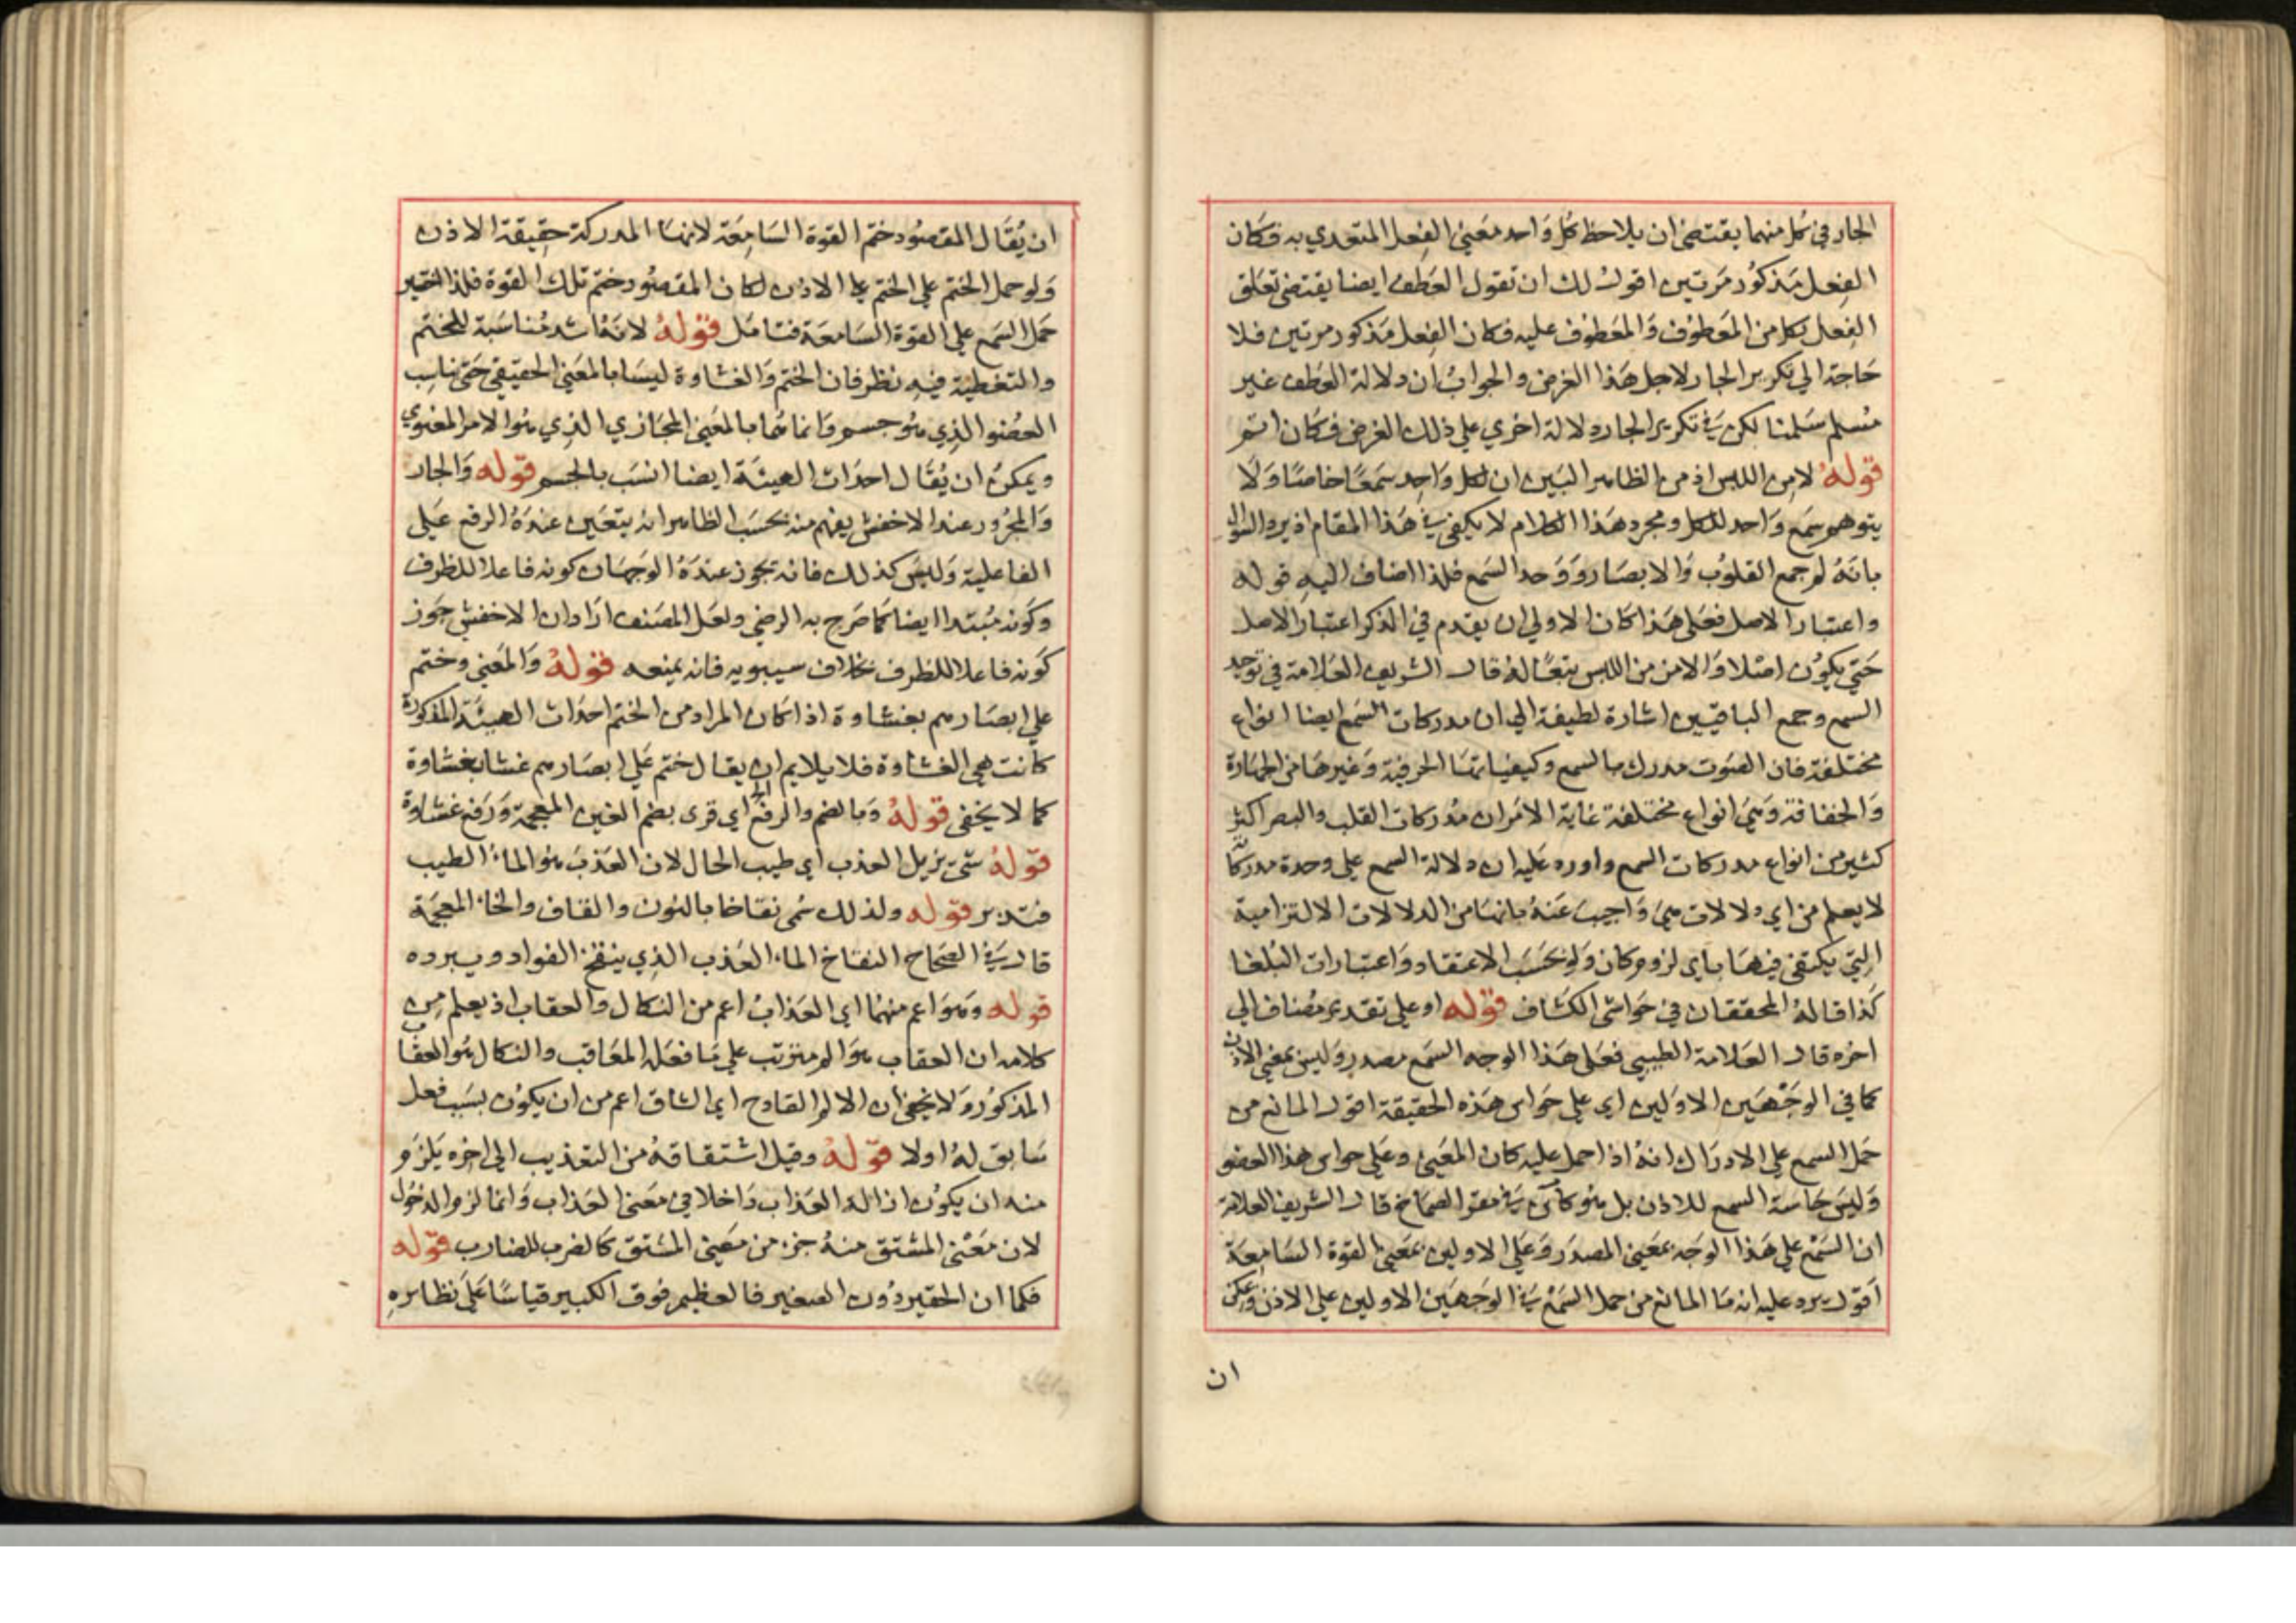 الجار في كل منهما يقتضي ان يلاحظ كل واحد معني الفعل المتعدي به فكان
الفعل مذكور مرتين اقول لك ان تقول العطف ايضا يقتضي تعلق
الفعل بكل من المعطوف والمعطوف عليه فكان الفعل مذكور مرتين فلا
حاجة الي تكرير الجار لاجل هذا الغرض والجواب ان دلالة العطف غير
مسلم سلمنا لكن في تكرير الجار دلالة اخري علي ذلك الغرض فكان اتم
قوله لامن اللبس اذ من الظاهر البين ان لكل واحد سمعا خاصا ولا
يتوهم سمع واحد للكل ومجرد هذا الكلام لا يكفي في هذا المقام اذ يرد السوال
بانه لم جمع القلوب والابصار ووحد السمع فلذا اضاف اليه قوله
واعتبار الاصل فعلي هذا كان الاولي ان يقدم في الذكر اعتبار الاصل
حتي يكون اصلا والامن من اللبس تبعا له قال الشريف العلامة في توحيد
السمع وجمع الباقيين اشارة لطيفة الي ان مدركات السمع ايضا انواع
مختلفة فان الصوت مدرك بالسمع وكيفياتها الحرفية وغيرها من الجهارة
والخفافة وهي انواع مختلفة غاية الامر ان مدركات القلب والبصر اكثر
كثير من انواع مدركات السمع واورد عليه ان دلالة السمع علي وحدة مدركاته
لا يعلم من اي دلالات هي واجيب عنه بانها من الدلالات الالتزامية
التي يكتفي فيها باي لزوم كان ولو بحسب الاعتقاد واعتبارات البلغا
كذا قاله المحققان في حواشي الكشاف قوله او علي تقدير مضاف الي
اخره قال العلامة الطيبي فعلي هذا الوجه السمع مصدر وليس بمعني الاذن
كما في الوجهين الاولين اي علي حواس هذه الحقيقة اقول المانع من
حمل السمع علي الادراك انه اذا حمل عليه كان المعني وعلي حواس هذا العضو
وليس حاسة السمع للاذن بل هو كائن في مقعر الصماخ قال الشريف العلامة
ان السمع علي هذا الوجه بمعني المصدر وعلي الاولين بمعني القوة السامعة
اقول يرد عليه انه ما المانع من حمل السمع في الوجهين الاولين علي الاذن ويمكن
ان
ان يقال المقصود ختم القوة السامعة لانها المدركة حقيقة الاذن
ولو حمل الختم علي الختم علي الاذن لكان المقصود ختم تلك القوة فلذا اختير
حمل السمع علي القوة السامعة فتامل قوله لانه اشد مناسبة للختم
والتغطية فيه نظر فان الختم والغشاوة ليسا بالمعني الحقيقي حتي يناسب
العضو الذي هو جسم وانما هما بالمعني المجازي الذي هو الامر المعنوي
ويمكن ان يقال احداث الهيئة ايضا انسب بالجسم قوله والجار
والمجرور عند الاخفش يفهم منه بحسب الظاهر انه يتعين عنده الرفع علي
الفاعلية وليس كذلك فانه يجوز عنده الوجهان كونه فاعلا للظرف
وكونه مبتدا ايضا كما صرح به الرضي ولعل المصنف اراد ان الاخفش جوز
كونه فاعلا للظرف بخلاف سيبويه فانه يمنعه قوله والمعني وختم
علي ابصارهم بغشاوة اذا كان المراد من الختم احداث الهيئة المذكورة
كانت هي الغشاوة فلا يلايم ان يقال ختم علي ابصارهم غشا بغشاوة
كما لا يخفي قوله وبالضم والرفع اي قرى بضم الغين المعجمة ورفع غشاوة
قوله شئ يزيل العذب اي طيب الحال لان العذب هو الماء الطيب
فتدبر قوله ولذلك سمى نقاخا بالنون والقاف والخاء المعجمة
قال في الصحاح النقاخ الماء العذب الذي ينقخ الفواد ويبرده
قوله وهو اعم منهما اي العذاب اعم من النكال والعقاب اذ يعلم من
كلامه ان العقاب هو الم مترتب علي ما فعله المعاقب والنكال هو العقاب
المذكور ولا يخفي ان الالم القادح اي الشاق اعم من ان يكون بسبب فعل
سابق له اولا قوله وقيل اشتقاقه من التعذيب الي اخره يلزم
منه ان يكون ازالة العذاب داخلا في معني العذاب وانما لزم الدخول
لان معني المشتق منه جزء من معني المشتق كالضرب للضارب قوله
فكما ان الحقير دون الصغير فالعظيم فوق الكبير قياسا علي نظايره